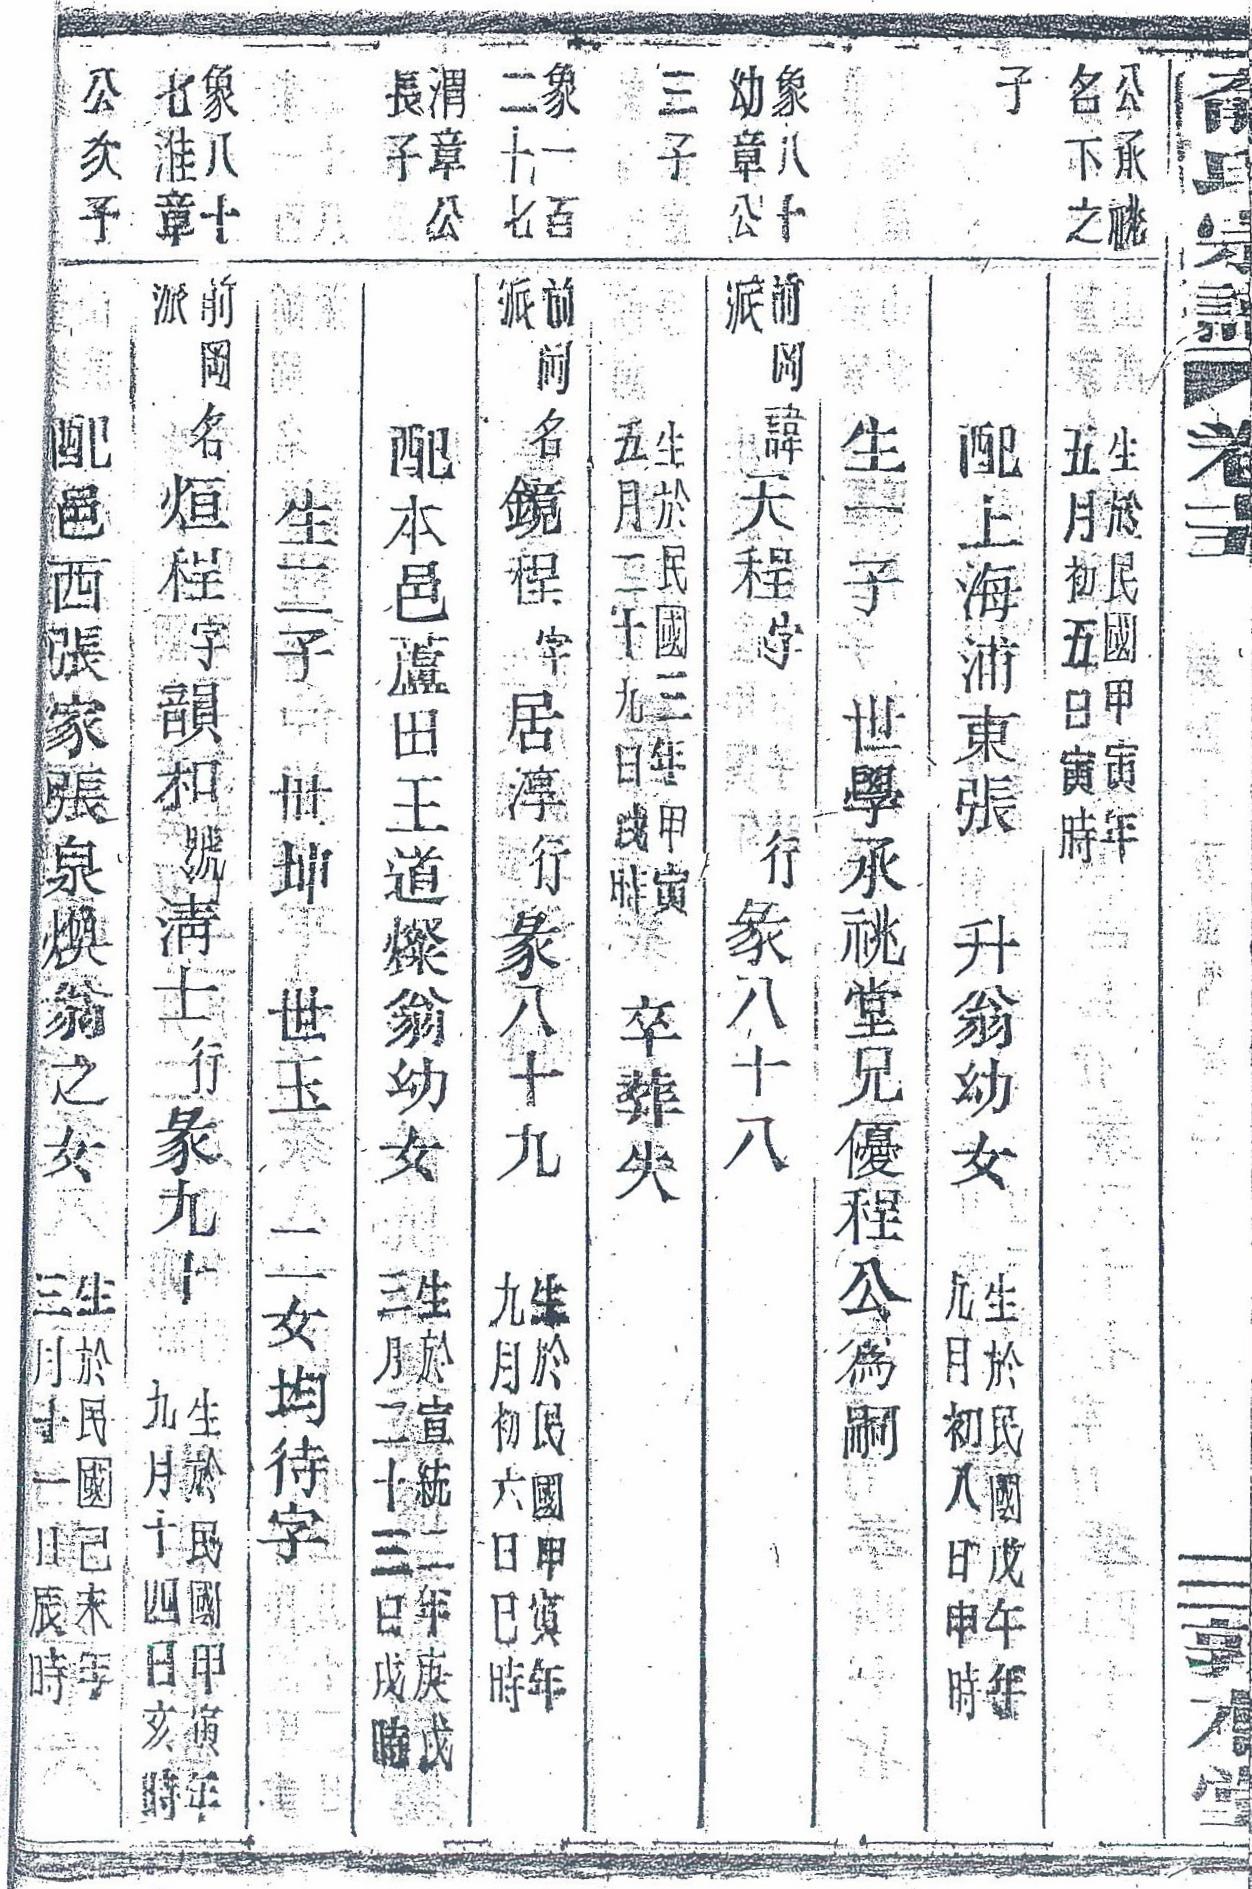 氏宗譜 卷三
公承祧
名下之
生於民國甲寅年
五月初五日寅時
子
配上海浦東張 升翁幼女
生於民國戊午年
九月初八日申時
生一子 世學承祧堂兄優程公為嗣
象八十
幼章公
前岡
派
諱天程字 行彖八十八
三子
生於民國三年甲寅
五月二十九日戌時
卒葬失
象一百
二十七
前岡
派
名鏡程字居淳行彖八十九
生於民國甲寅年
九月初六日巳時
渭章公
長子
配本邑蘆田王道燦翁幼女
生於宣統二年庚戌
三月二十三日戌時
生二子 世坤 世玉 二女均待字
象八十
七淮章
前岡
派
名烜程字韻和號清士行彖九十
生於民國甲寅年
九月十四日亥時
公次子
配邑西張家張泉煥翁之女
生於民國己未年
三月十一日辰時